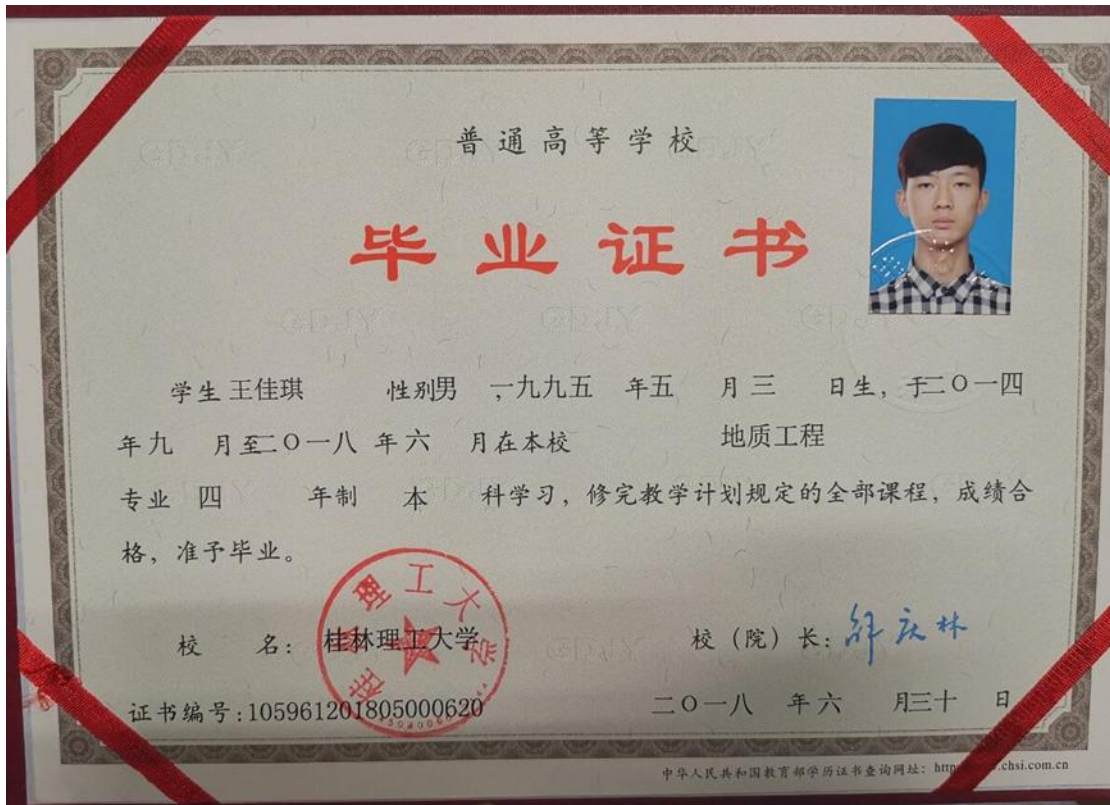 普通高等学校
毕业证书
学生 王佳琪 性别男 ,一九九五 年五 月三 日生，于二〇一四
年九 月至二〇一八 年六 月在本校 地质工程
专业 四 年制 本 科学习，修完教学计划规定的全部课程，成绩合
格，准予毕业。
校 名： 桂林理工大学 校（院）长：
桂林理工大学
证书编号:105961201805000620 二〇一八 年六 月三十 日
中华人民共和国教育部学历证书查询网址： chsi.com.cn